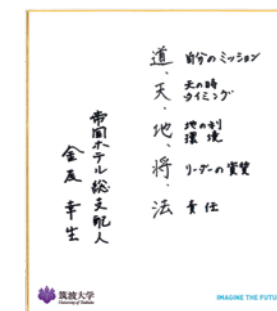 道、自分のミッション
天、天の時
タイミング
地、地の利
環境
将、リーダーの資質
法 責任
帝国ホテル総支配人
金尾幸生
筑波大学
University of Tsukuba
IMAGINE THE FUTU